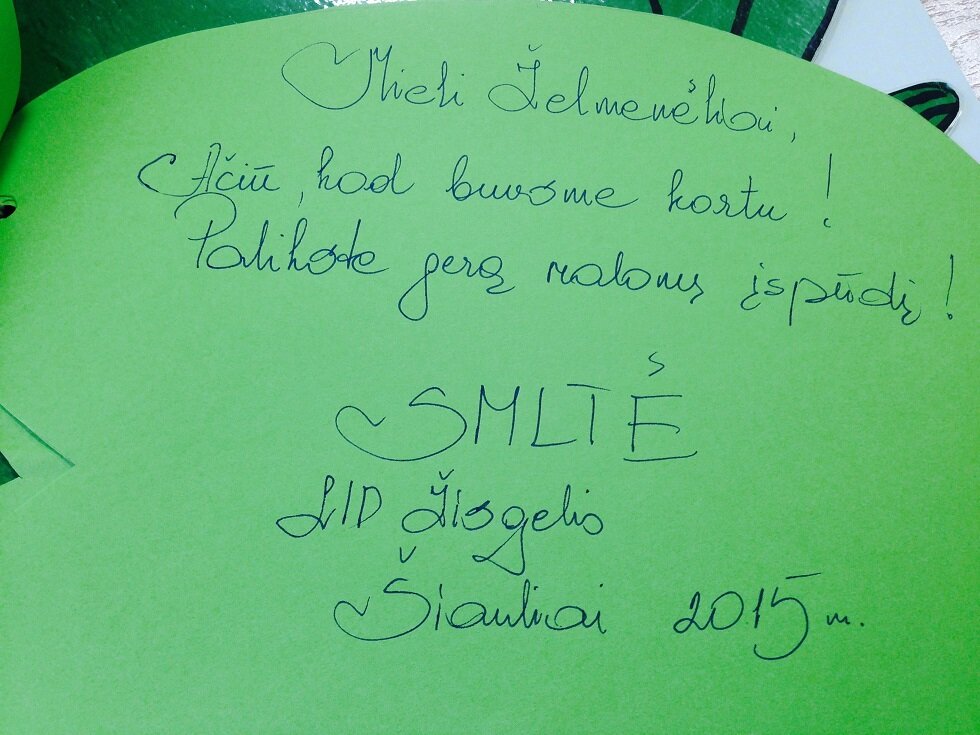 Mieli Želmenėliai,
Ačiū, kad buvome kartu!
Palikote gerą malonų įspūdį!
SMLTĖ
L/D Žiogelis
Šiauliai 2015 m.